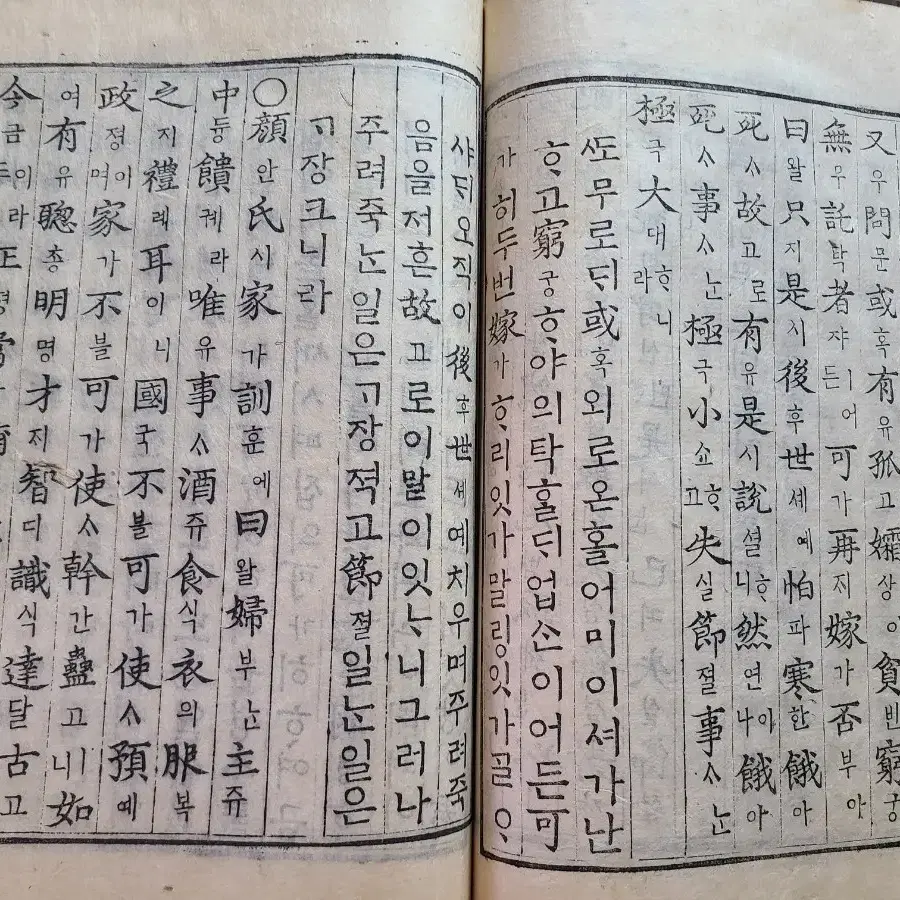 又우問문或혹有유孤고孀상이貧빈窮궁
無무託탁者쟈ㅣ어든可가再ᄌᆡ嫁가否부아
曰왈只지是시後후世셰예怕파寒한餓아
死ᄉᆞ故고로有유是시說셜ᄒᆞ니然연이나餓아
死ᄉᆞ事ᄉᆞᄂᆞᆫ極극小쇼ᄒᆞ고失실節졀事ᄉᆞᄂᆞᆫ
極극大대ᄒᆞ니라
ᄯᅩ무로ᄃᆡ或혹외로온홀어미이셔가난
ᄒᆞ고窮궁ᄒᆞ야의탁ᄒᆞᆯᄃᆡ업ᄉᆞᆫ이어든可
가히두번嫁가ᄒᆞ리잇가말링잇가ᄀᆞᆯᄋᆞ
샤ᄃᆡ오직이後후世셰예치우며주려죽
음을저흔故고로이말이잇ᄂᆞ니그러나
주려죽ᄂᆞᆫ일은ᄀᆞ장젹고節졀일ᄂᆞᆫ일은
ᄀᆞ장크니라
○顔안氏시家가訓훈에曰왈婦부ᄂᆞᆫ主쥬
中듕饋궤라唯유事ᄉᆞ酒쥬食식衣의服복
之지禮례耳이니國국不블可가使ᄉᆞ預예
政졍이며家가不블可가使ᄉᆞ幹간蠱고ㅣ니如
여有유聰총明명才ᄌᆡ智디識식達달古고
今금이라正當